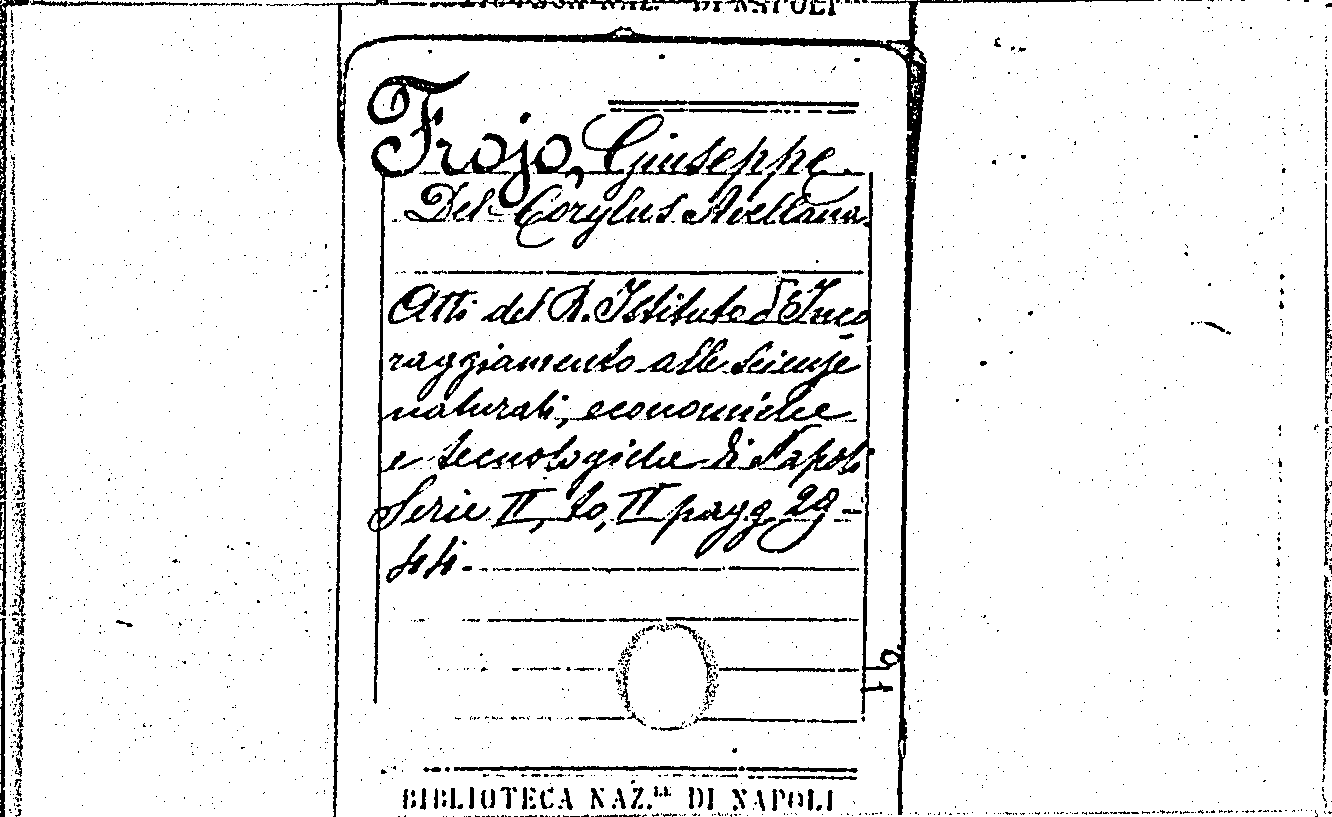 DI NAPOLI
Frojo, Giuseppe.
Del Corylus Avellana.
Atti del R. Istituto d'Inco
raggiamento alle scienze
naturali, economiche
e tecnologiche di Napoli
Serie II, to, II pagg. 29-
44.
BIBLIOTECA NAZ.LE DI NAPOLI